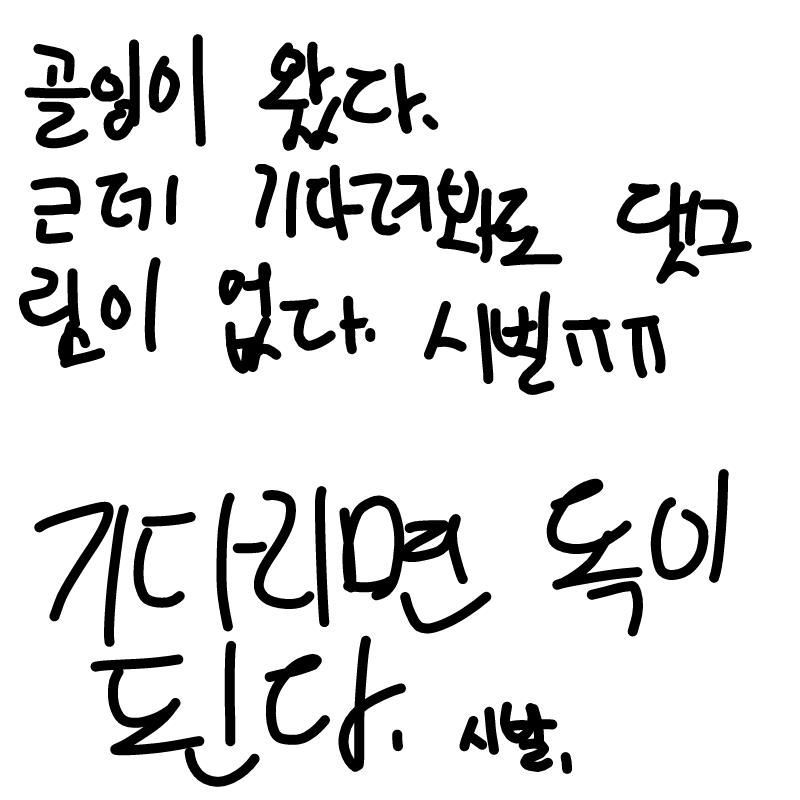 골잉이 왔다.
근데 기다려봐도 댓그
릴이 없다. 시벌ㅠㅠ
기다리면 독이
된다. 시발,